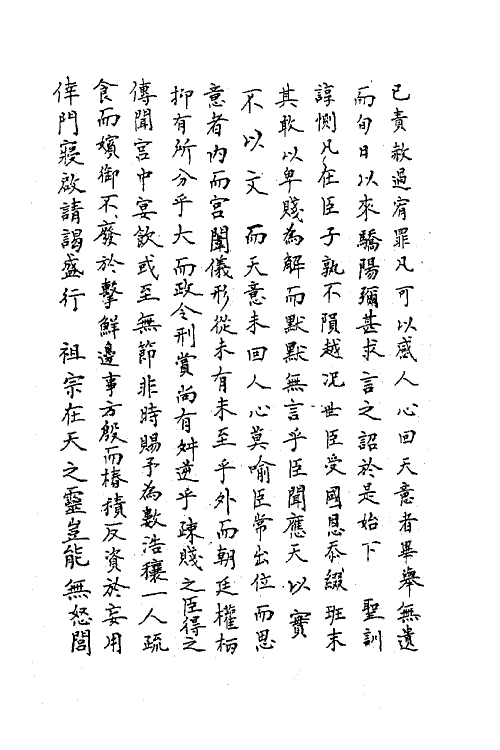 己責赦過宥罪凡可以感人心回天意者畢舉無遺
而旬日以來驕陽彌甚求言之詔於是始下　聖訓
諄惻凡在臣子孰不隕越況世臣受國恩忝綴班末
其敢以卑賤為解而默默無言乎臣聞應天以實
不以文　而天意未回人心莫喻臣常出位而思
意者內而宮闈儀形從未有未至乎外而朝廷權柄
抑有所分乎大而政令刑賞尚有舛逆乎疎賤之臣得之
傳聞宮中宴飲或至無節非時賜予為數浩穰一人疏
食而嬪御不廢於擊鮮邊事方殷而樁積反資於妄用
倖門寖啟請謁盛行　祖宗在天之靈豈能無怒閭